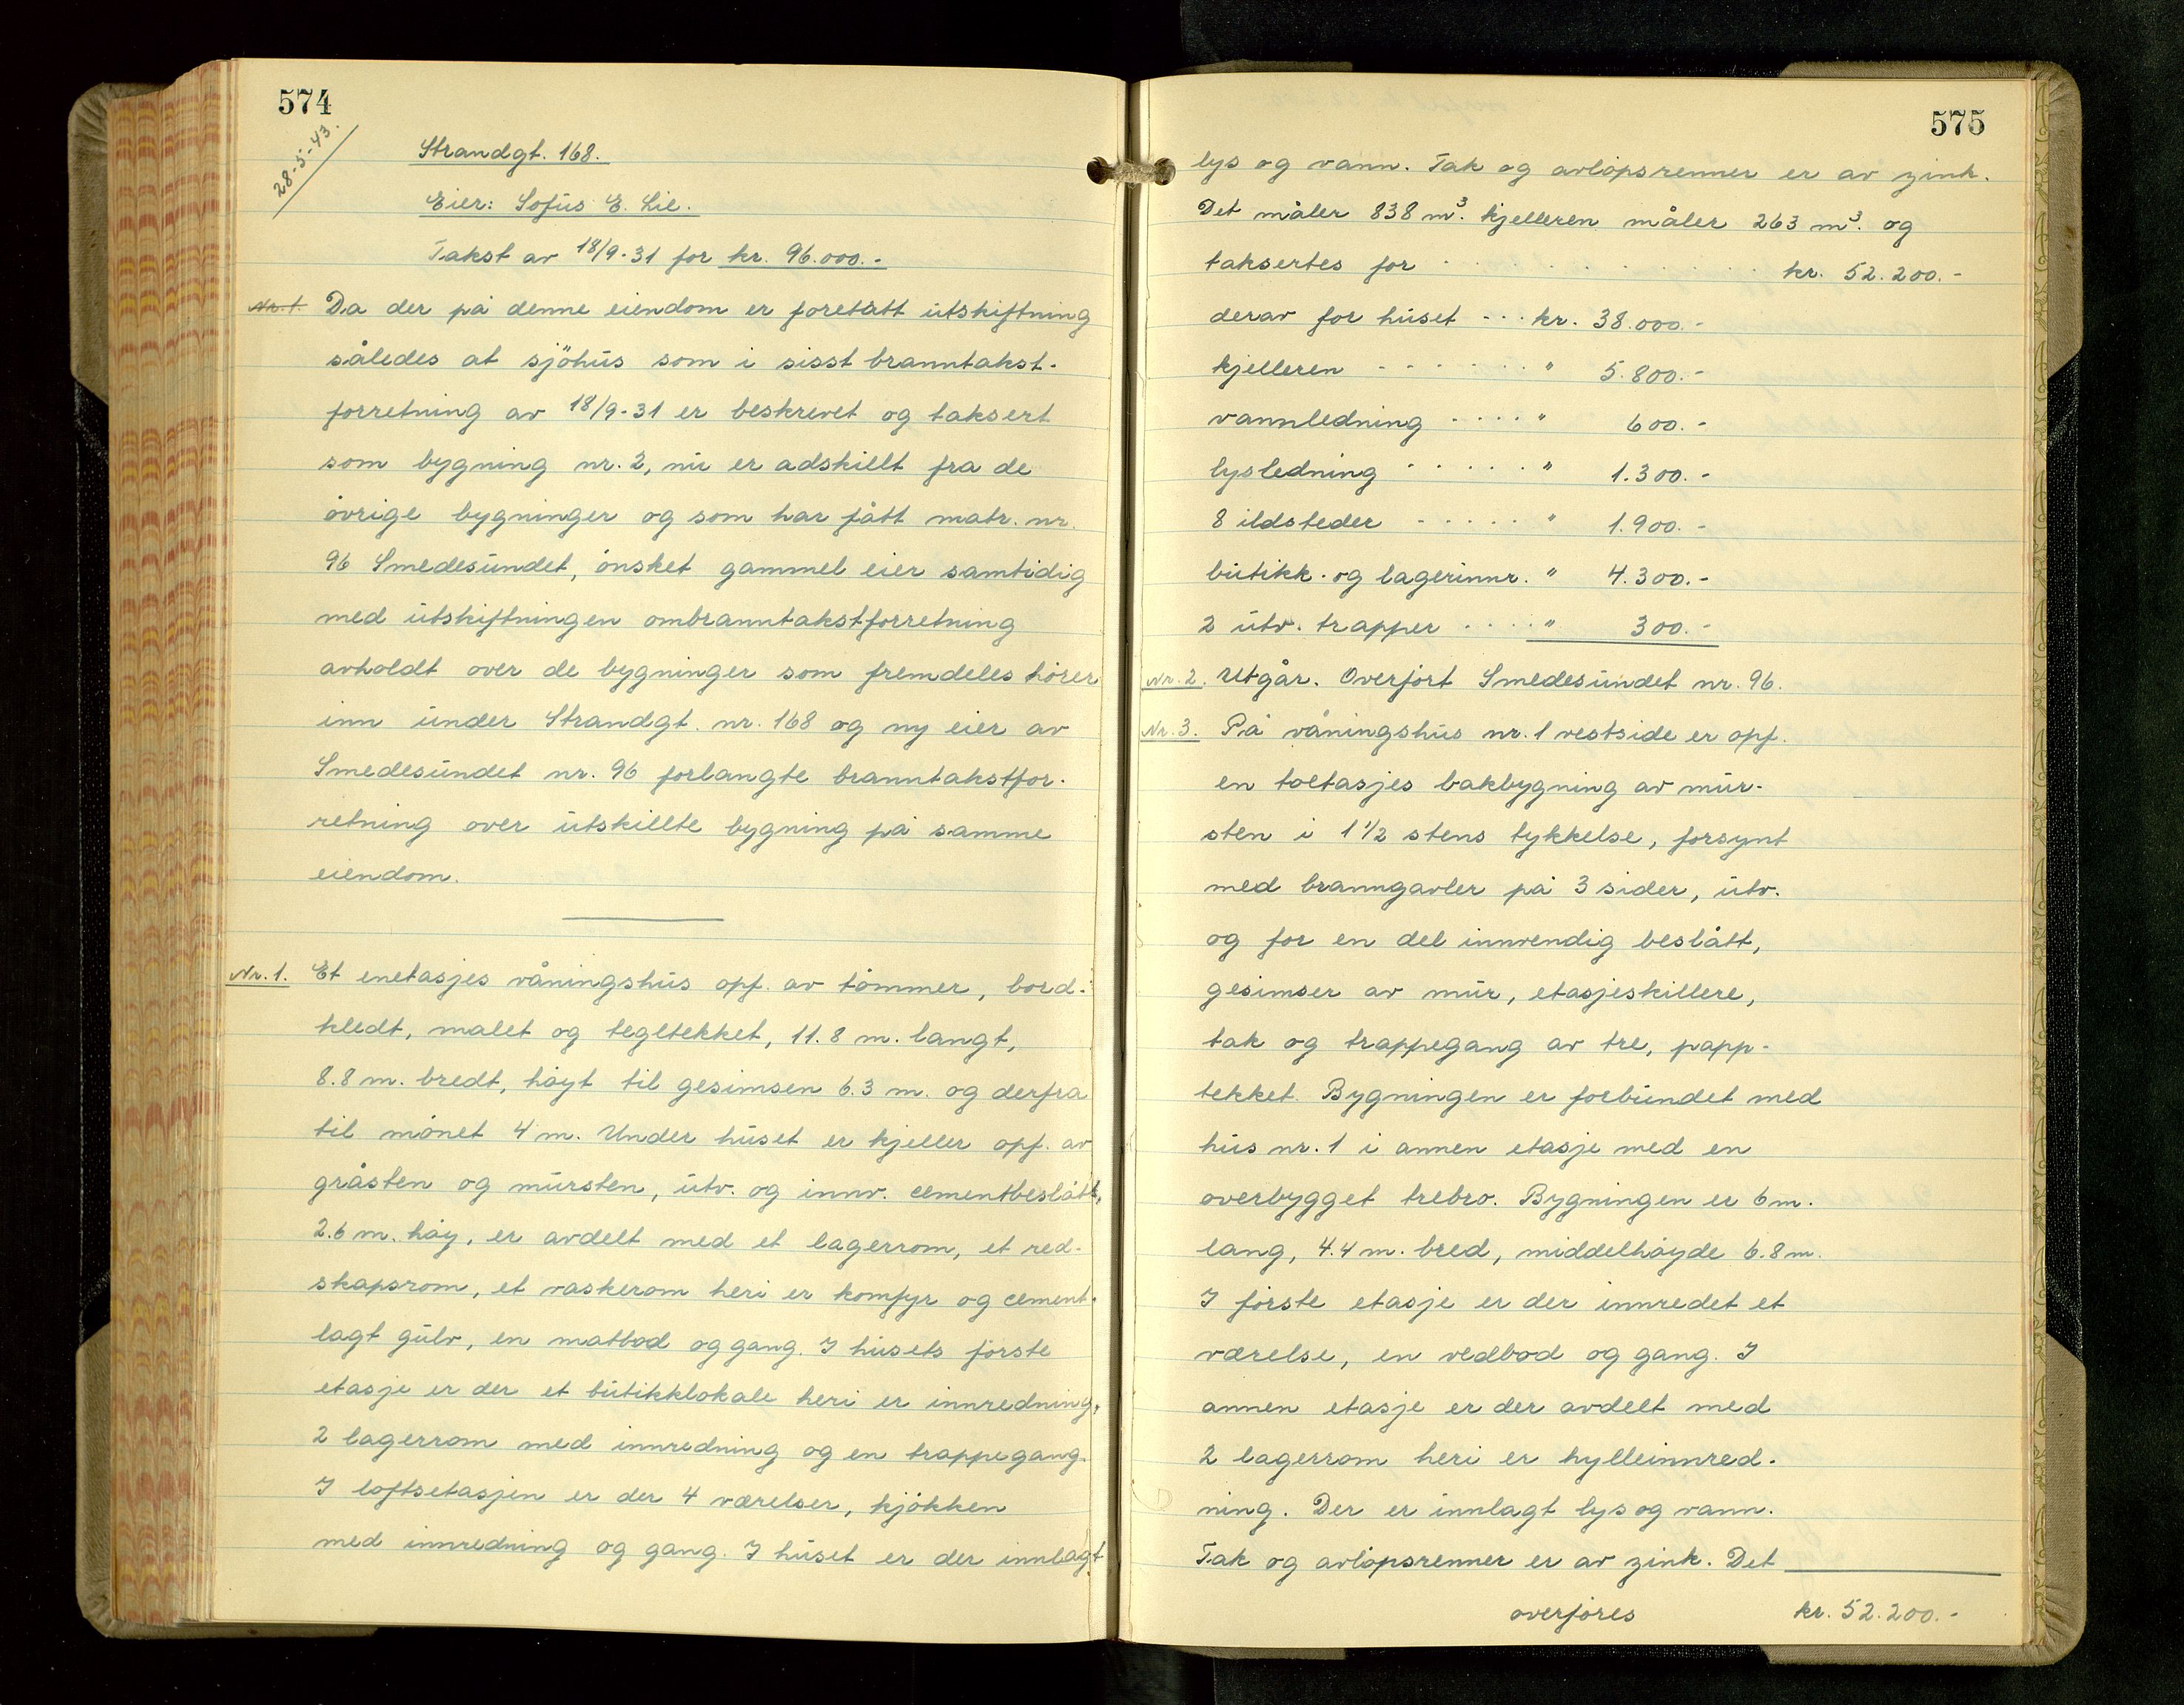 574
28-5-43.
Strandgt. 168.
Eier: Sofus E. Lie.
Takst av 18/9-31 for kr. 96.000.-
Nr. 1. Da der på denne eiendom er foretatt utskiftning
således at sjöhus som i sisst branntakst-
forretning av 18/9-31 er beskrevet og taksert
som bygning nr. 2, nu er adskillt fra de
övrige bygninger og som har fått matr. nr.
96 Smedesundet, önsket gammel eier samtidig
med utskiftningen ombranntakstforretning
avholdt over de bygninger som fremdeles hörer
inn under Strandgt. nr. 168 og ny eier av
Smedesundet nr. 96 forlangte branntakstfor-
retning over utskillte bygning på samme
eiendom.
Nr. 1. Et enetasjes våningshus opf. av tömmer, bord-
kledt, malet og tegltekket, 11.8 m. langt,
8.8 m. bredt, höyt til gesimsen 6.3 m. og derfra
til mönet 4 m. Under huset er kjeller opf. av
gråsten og mursten, utv. og innv. cementbeslått,
2.6 m. höy, er avdelt med et lagerrom, et red-
skapsrom, et vaskerom heri er komfyr og cement-
lagt gulv, en matbod og gang. I husets förste
etasje er der et butikklokale heri er innredning,
2 lagerrom med innredning og en trappegang.
I loftsetasjen er der 4 værelser, kjökken
med innredning og gang. I huset er der innlagt
575
lys og vann. Tak og avlöpsrenner er av zink.
Det måler 838 m³. kjelleren måler 263 m³. og
taksertes for . . . . . . . . kr. 52.200.-
derav for huset - - - kr. 38.000.-
kjelleren - - - - - - - " 5.800.-
vannledning - - - - - " 600.-
lysledning - - - - - - " 1.300.-
8 ildsteder - - - - - " 1.900.-
butikk- og lagerinnr. " 4.300.-
2 utv. trapper - - - - " 300.-
Nr. 2. Utgår. Overfört Smedesundet nr. 96.
Nr. 3. På våningshus nr. 1 vestside er opf.
en toetasjes bakbygning av mur-
sten i 1 1/2 stens tykkelse, forsynt
med branngavler på 3 sider, utv.
og for en del innvendig beslått,
gesimser av mur, etasjeskillere,
tak og trappegang av tre, papp-
tekket. Bygningen er forbundet med
hus nr. 1 i annen etasje med en
overbygget trebro. Bygningen er 6 m.
lang, 4.4 m. bred, middelhöyde 6.8 m.
I förste etasje er der innredet et
værelse, en vedbod og gang. I
annen etasje er der avdelt med
2 lagerrom heri er hylleinnred-
ning. Der er innlagt lys og vann.
Tak og avlöpsrenner er av zink. Det
overföres kr. 52.200.-